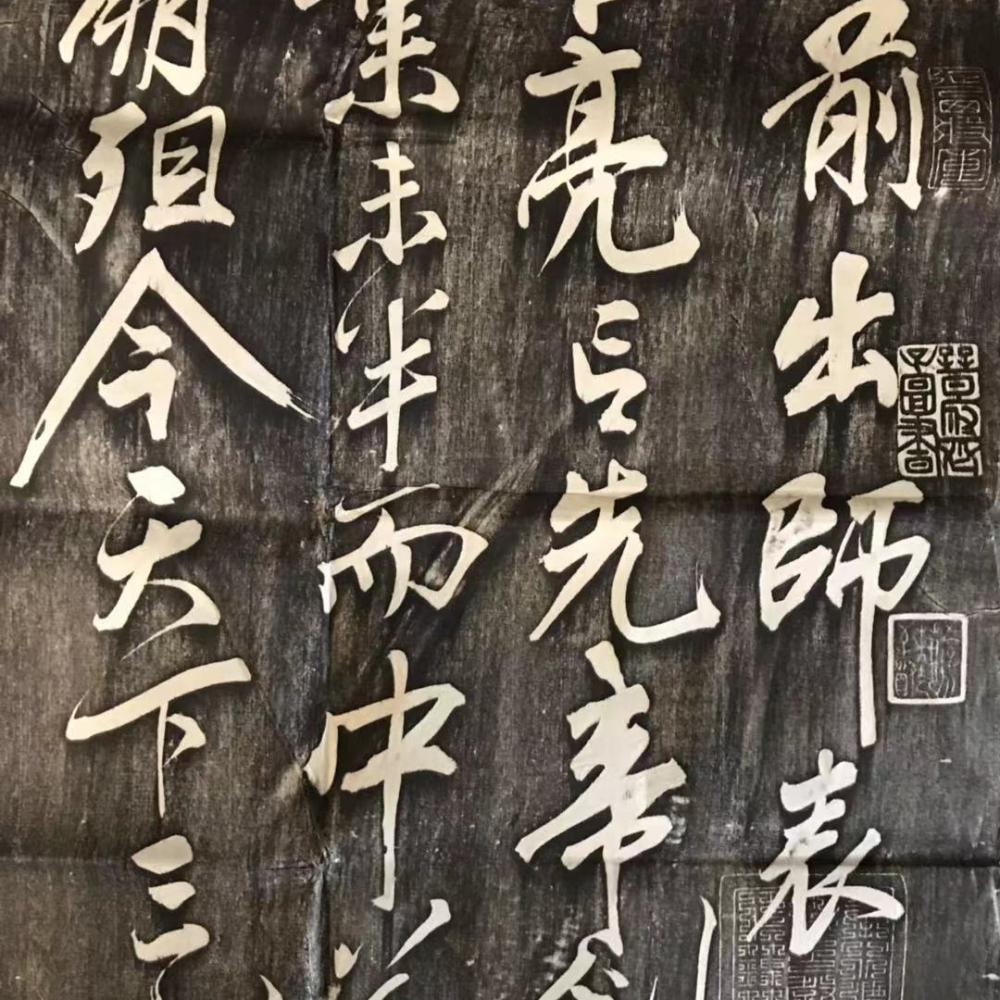 前出師表
亮言先帝
業未半而中
崩殂今天下三